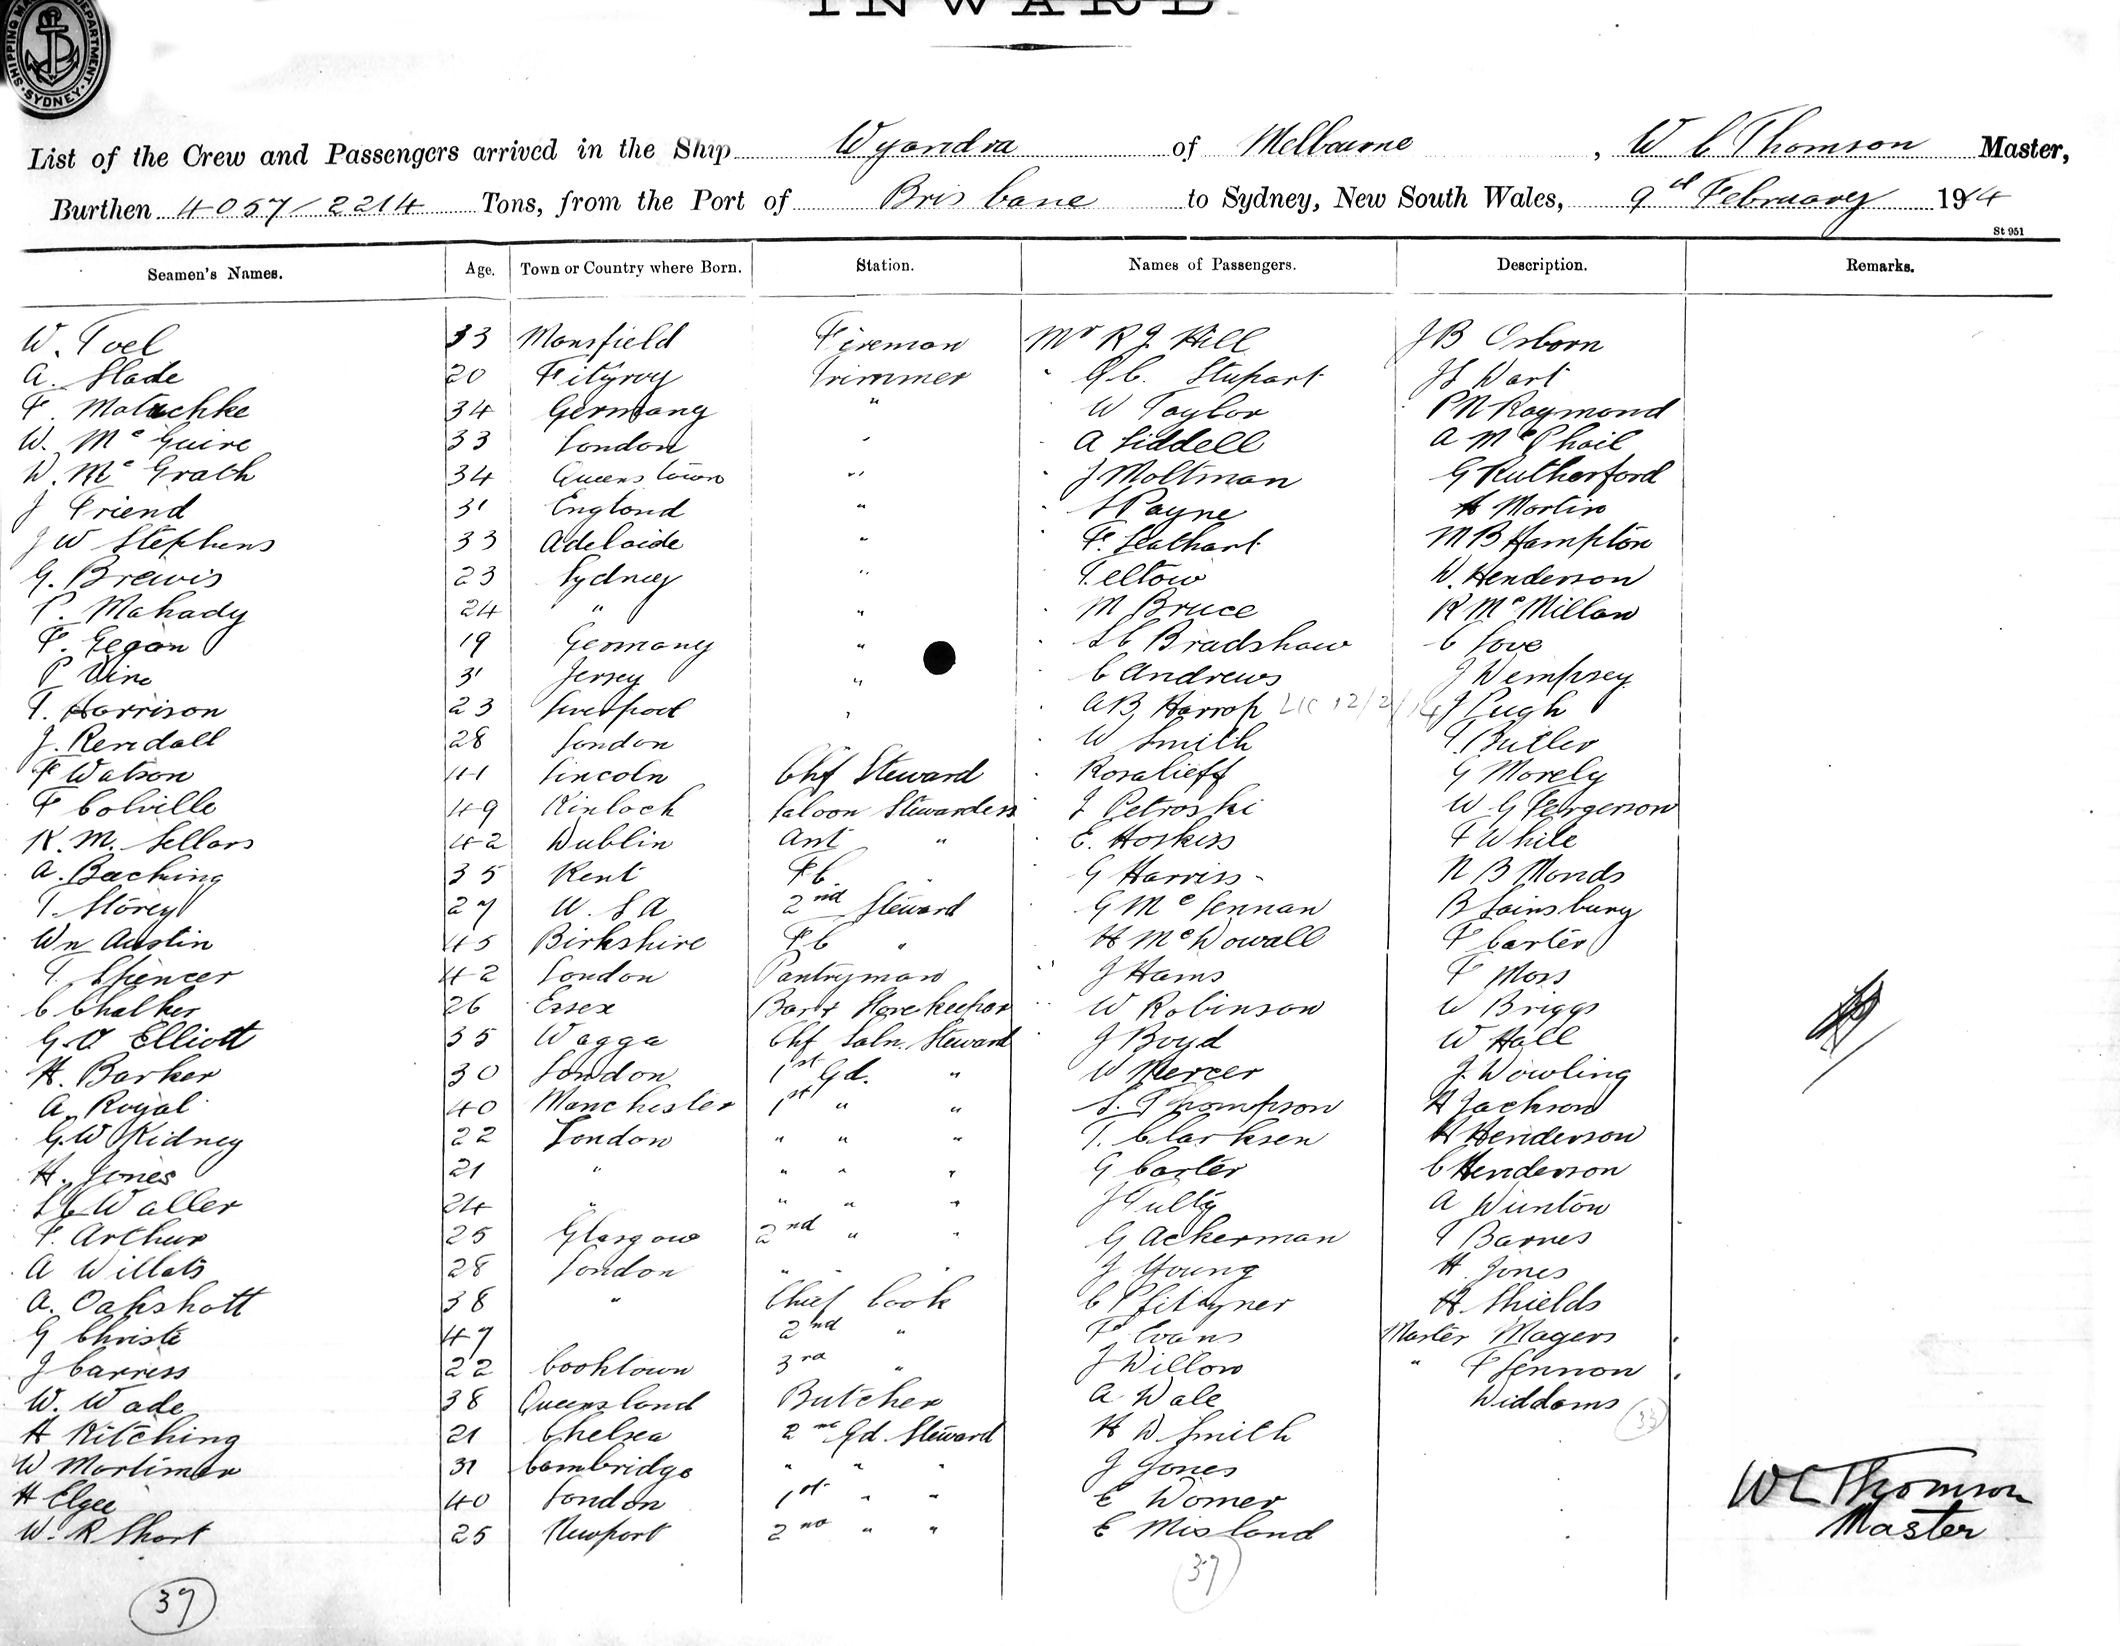 INWARD
SHIPPING MA DEPARTMENT. SYDNEY.
List of the Crew and Passengers arrived in the Ship Wyandra of Melbourne, W C Thomson Master,
Burthen 4057/2214 Tons, from the Port of Brisbane to Sydney, New South Wales, 9th February 1914
St 951
Seamen's Names. Age. Town or Country where Born. Station. Names of Passengers. Description. Remarks.
W. Toel 33 Mansfield Fireman Mr R J Hill J B Osborn
A. Slade 20 Fitzroy Trimmer " G C. Stupart J S Wart
F. Matuchke 34 Germany " W Taylor P N Raymond
W. McGuire 33 London " A Liddell A McPhail
W. McGrath 34 Queenstown " J Moltman G Rutherford
J Friend 31 England " S Payne H Martin
J W Stephens 33 Adelaide " F. Leathart M B Hampton
G. Brewis 23 Sydney " Teltow W. Henderson
P. Mahady 24 " " M Bruce R McMillan
F. Gegan 19 Germany " L C Bradshaw C Love
P Vine 31 Jersey " C Andrews J Dempsey
T. Harrison 23 Liverpool " A B Harrop 12/2/14 J Pugh
J. Rendall 28 London W Smith T Butler
F Watson 41 Lincoln Chf Steward Rosalieff G Morely
F Colville 49 Kinloch Saloon Stewardess J Petroski W G Fergerson
R. M. Sellars 42 Dublin Asst " E. Hoskiss F White
A. Backing 35 Kent F C " G Harriss - N B Monds
T. Storey 27 U. S A 2nd Steward G McLennan B Sainsbury
Wm Austin 45 Birkshire F C " H McDowall F Carter
T Spencer 42 London Pantryman J Hams F Moss
C Chalker 26 Essex Bar & Storekeeper W Robinson W Briggs
G. A Elliott 35 Wagga Chf Saln. Steward J Boyd W Hall
H. Barker 30 London 1st Gd. " W Mercer J. Dowling
A. Royal 40 Manchester 1st " " S. Thompson H Jackson
G. W Kidney 22 London " " " T. Clarksen H Henderson
H. Jones 21 " " " " G Carter C Henderson
L C Waller 24 " " " " J Tulty A Dunton
F. Arthur 25 Glasgow 2nd " " G Ackerman T Barnes
A Willats 28 London " " " J Young H Jones
A. Oakshott 38 " Chief Cook C Pfitzner H Shields
G Christe 47 2nd " F Evans Master Magers
J Carriss 22 Cooktown 3rd " J Dillow " F Lennon
W. Wade 38 Queensland Butcher A Dale Widdoms
33
H Kitching 21 Chelsea 2nd Gd. Steward H D Smith
W Mortimer 31 Cambridge " " " J Jones
H Elgee 40 London 1st " " E Womer
W. R Short 25 Newport 2nd " " E Misland
37 37
W C Thomson
Master